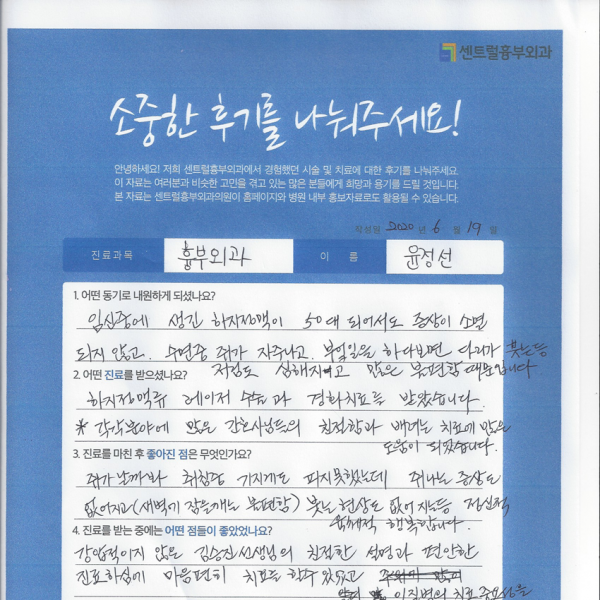 센트럴흉부외과
소중한 후기를 나눠주세요!
안녕하세요! 저희 센트럴흉부외과에서 경험했던 시술 및 치료에 대한 후기를 나눠주세요.
이 자료는 여러분과 비슷한 고민을 겪고 있는 많은 분들에게 희망과 용기를 드릴 것입니다.
본 자료는 센트럴흉부외과의원이 홈페이지와 병원 내부 홍보자료로도 활용될 수 있습니다.
작성일 2020 년 6 월 19 일
진료과목 흉부외과 이 름 윤정선
1. 어떤 동기로 내원하게 되셨나요?
임신중에 생긴 하지정맥이 50대 되어서도 증상이 소멸
되지 않고. 수면중 쥐가 자주나고. 부엌일을 하다보면 다리가 붓는등
2. 어떤 진료를 받으셨나요? 저림도 심해지고 많은 불편함 때문입니다
하지정맥류 레이저 수술과 경화치료를 받았습니다.
* 각분야에 많은 간호사님들의 친절함과 배려는 치료에 많은
도움이 되었습니다.
3. 치료를 마친 후 좋아진 점은 무엇인가요?
쥐가 날까봐 취침중 기지개도 피지못했는데 쥐나는 증상도
없어지고 (새벽에 잠을깨는 불편함) 붓는 현상도 없어 지는등 정신적
육체적 행복합니다.
4. 진료를 받는 중에는 어떤 점들이 좋았었나요?
강압적이지 않은 김승진선생님의 친절한 설명과 편안한
진료하심에 마음편히 치료를 할수 있었고
이 질병의 치료 중요성을